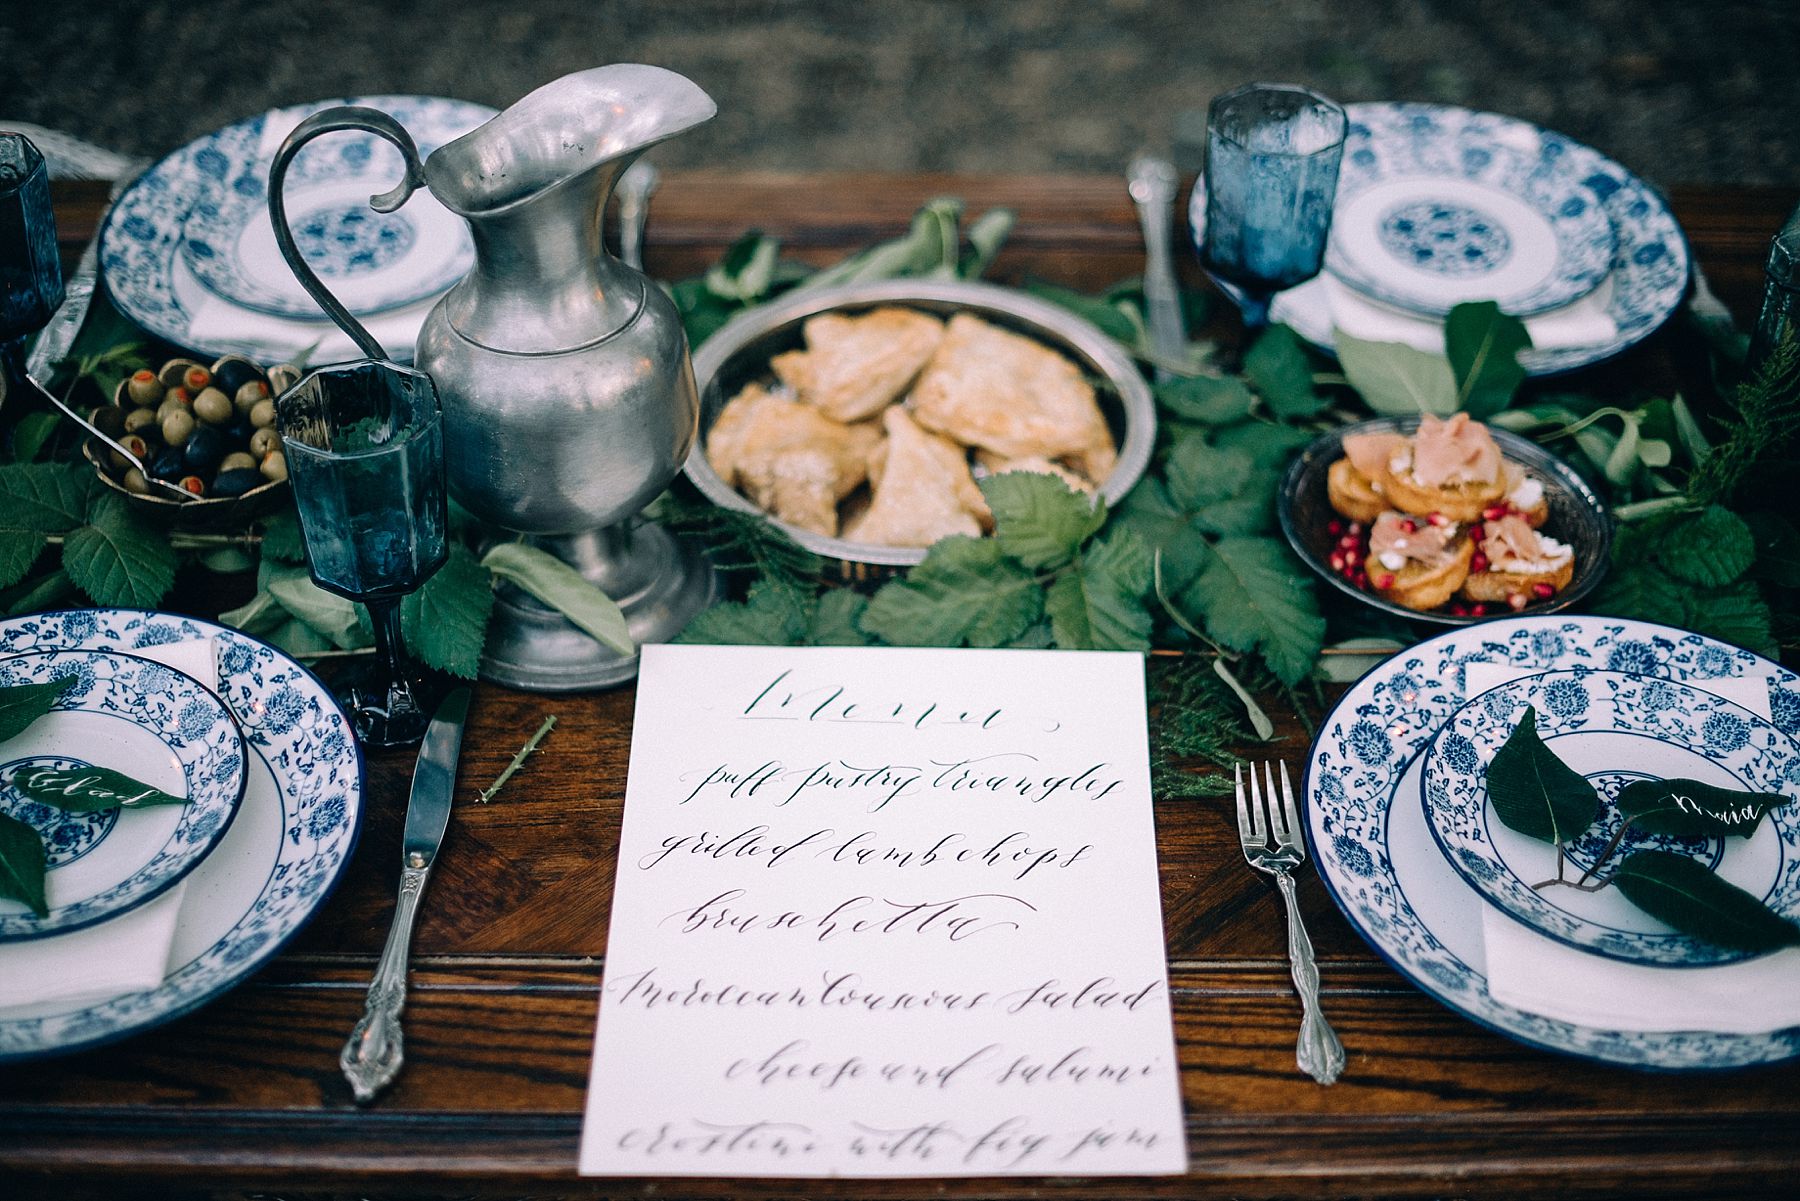 Menu
puff pastry triangles
grilled lamb chops
bruschetta
Moroccan Couscous Salad
cheese and salami
crostini with fig jam
Maia